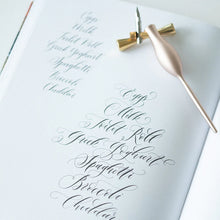 Eggs
Milk
Fried Roll
Greek Yoghurt
Spaghetti
Broccoli
Cheddar
Eggs
Milk
Roll
Greek Yoghurt
Spaghetti
Broccoli
Cheddar